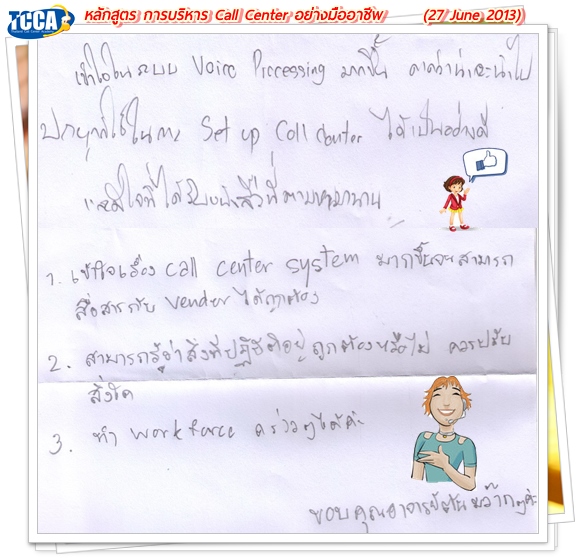 TCCA
หลักสูตร การบริหาร Call Center อย่างมืออาชีพ (27 June 2013)
เข้าใจในระบบ Voice Processing มากขึ้น คาดว่าน่าจะนำไป
ประยุกต์ใช้ในการ Set up Call Center ได้เป็นอย่างดี
และดีใจที่ได้รับหนังสือที่ตามหามานาน
1. เข้าใจเรื่อง call center system มากขึ้นจนสามารถ
สื่อสารกับ vender ได้ถูกต้อง
2. สามารถรู้ว่าสิ่งที่ปฏิบัติอยู่ ถูกต้องหรือไม่ ควรปรับ
สิ่งใด
3. ทำ workforce คร่าวๆได้ค่ะ
ขอบคุณอาจารย์ มากๆค่ะ